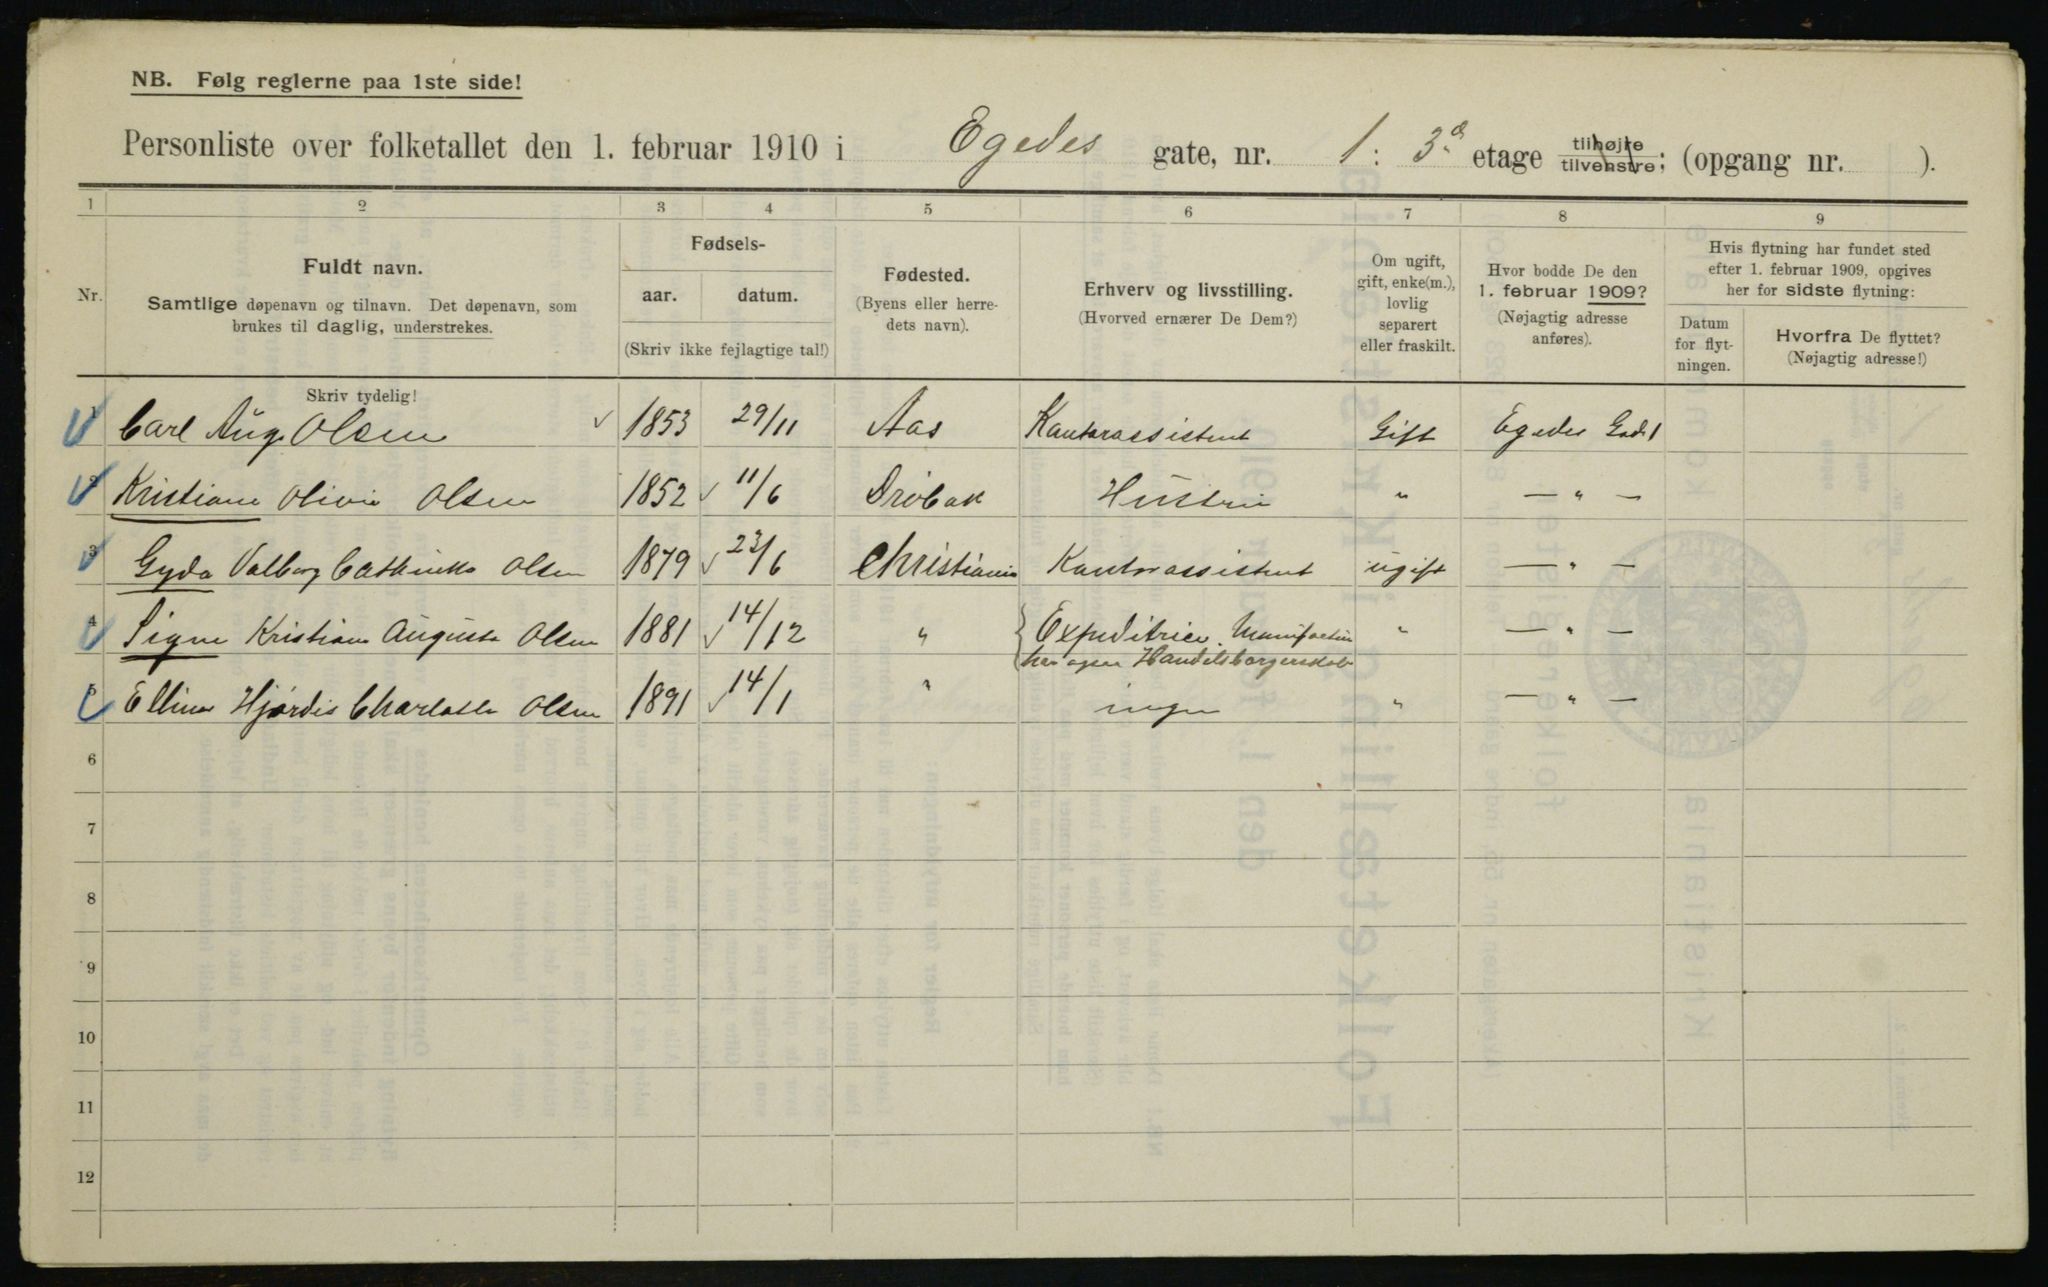 NB. Følg reglerne paa 1ste side!
Personliste over folketallet den 1. februar 1910 i Egedes gate, nr. 1: 3d etage tilhøjre tilvenstre; (opgang nr. ).
1 2 3 4 5 6 7 8 9
Nr.
Fuldt navn.
Samtlige døpenavn og tilnavn. Det døpenavn, som
brukes til daglig, understrekes.
Fødsels-
aar. datum.
(Skriv ikke fejlagtige tal!)
Fødested.
(Byens eller herre-
dets navn).
Erhverv og livsstilling.
(Hvorved ernærer De Dem?)
Om ugift,
gift, enke(m.),
lovlig
separert
eller fraskilt.
Hvor bodde De den
1. februar 1909?
(Nøjagtig adresse
anføres).
Hvis flytning har fundet sted
efter 1. februar 1909, opgives
her for sidste flytning:
Datum
for flyt-
ningen.
Hvorfra De flyttet?
(Nøjagtig adresse!)
Skriv tydelig!
1 Carl Aug. Olsen 1853 29/11 Aas Kontorassistent Gift Egedes Gade 1
2 Kristiane Olivie Olsen 1852 11/6 Drøbak Hustru " — " —
3 Gyda Valborg Cathinka Olsen 1879 23/6 Christiania Kontorassistent ugift — " —
4 Signe Kristiane Augusta Olsen 1881 14/12 " Expeditrice, Manufactur " — " —
har ogsaa Handelsborgerskab
5 Elline Hjørdis Charlotte Olsen 1891 14/1 " ingen " — " —
6
7
8
9
10
11
12